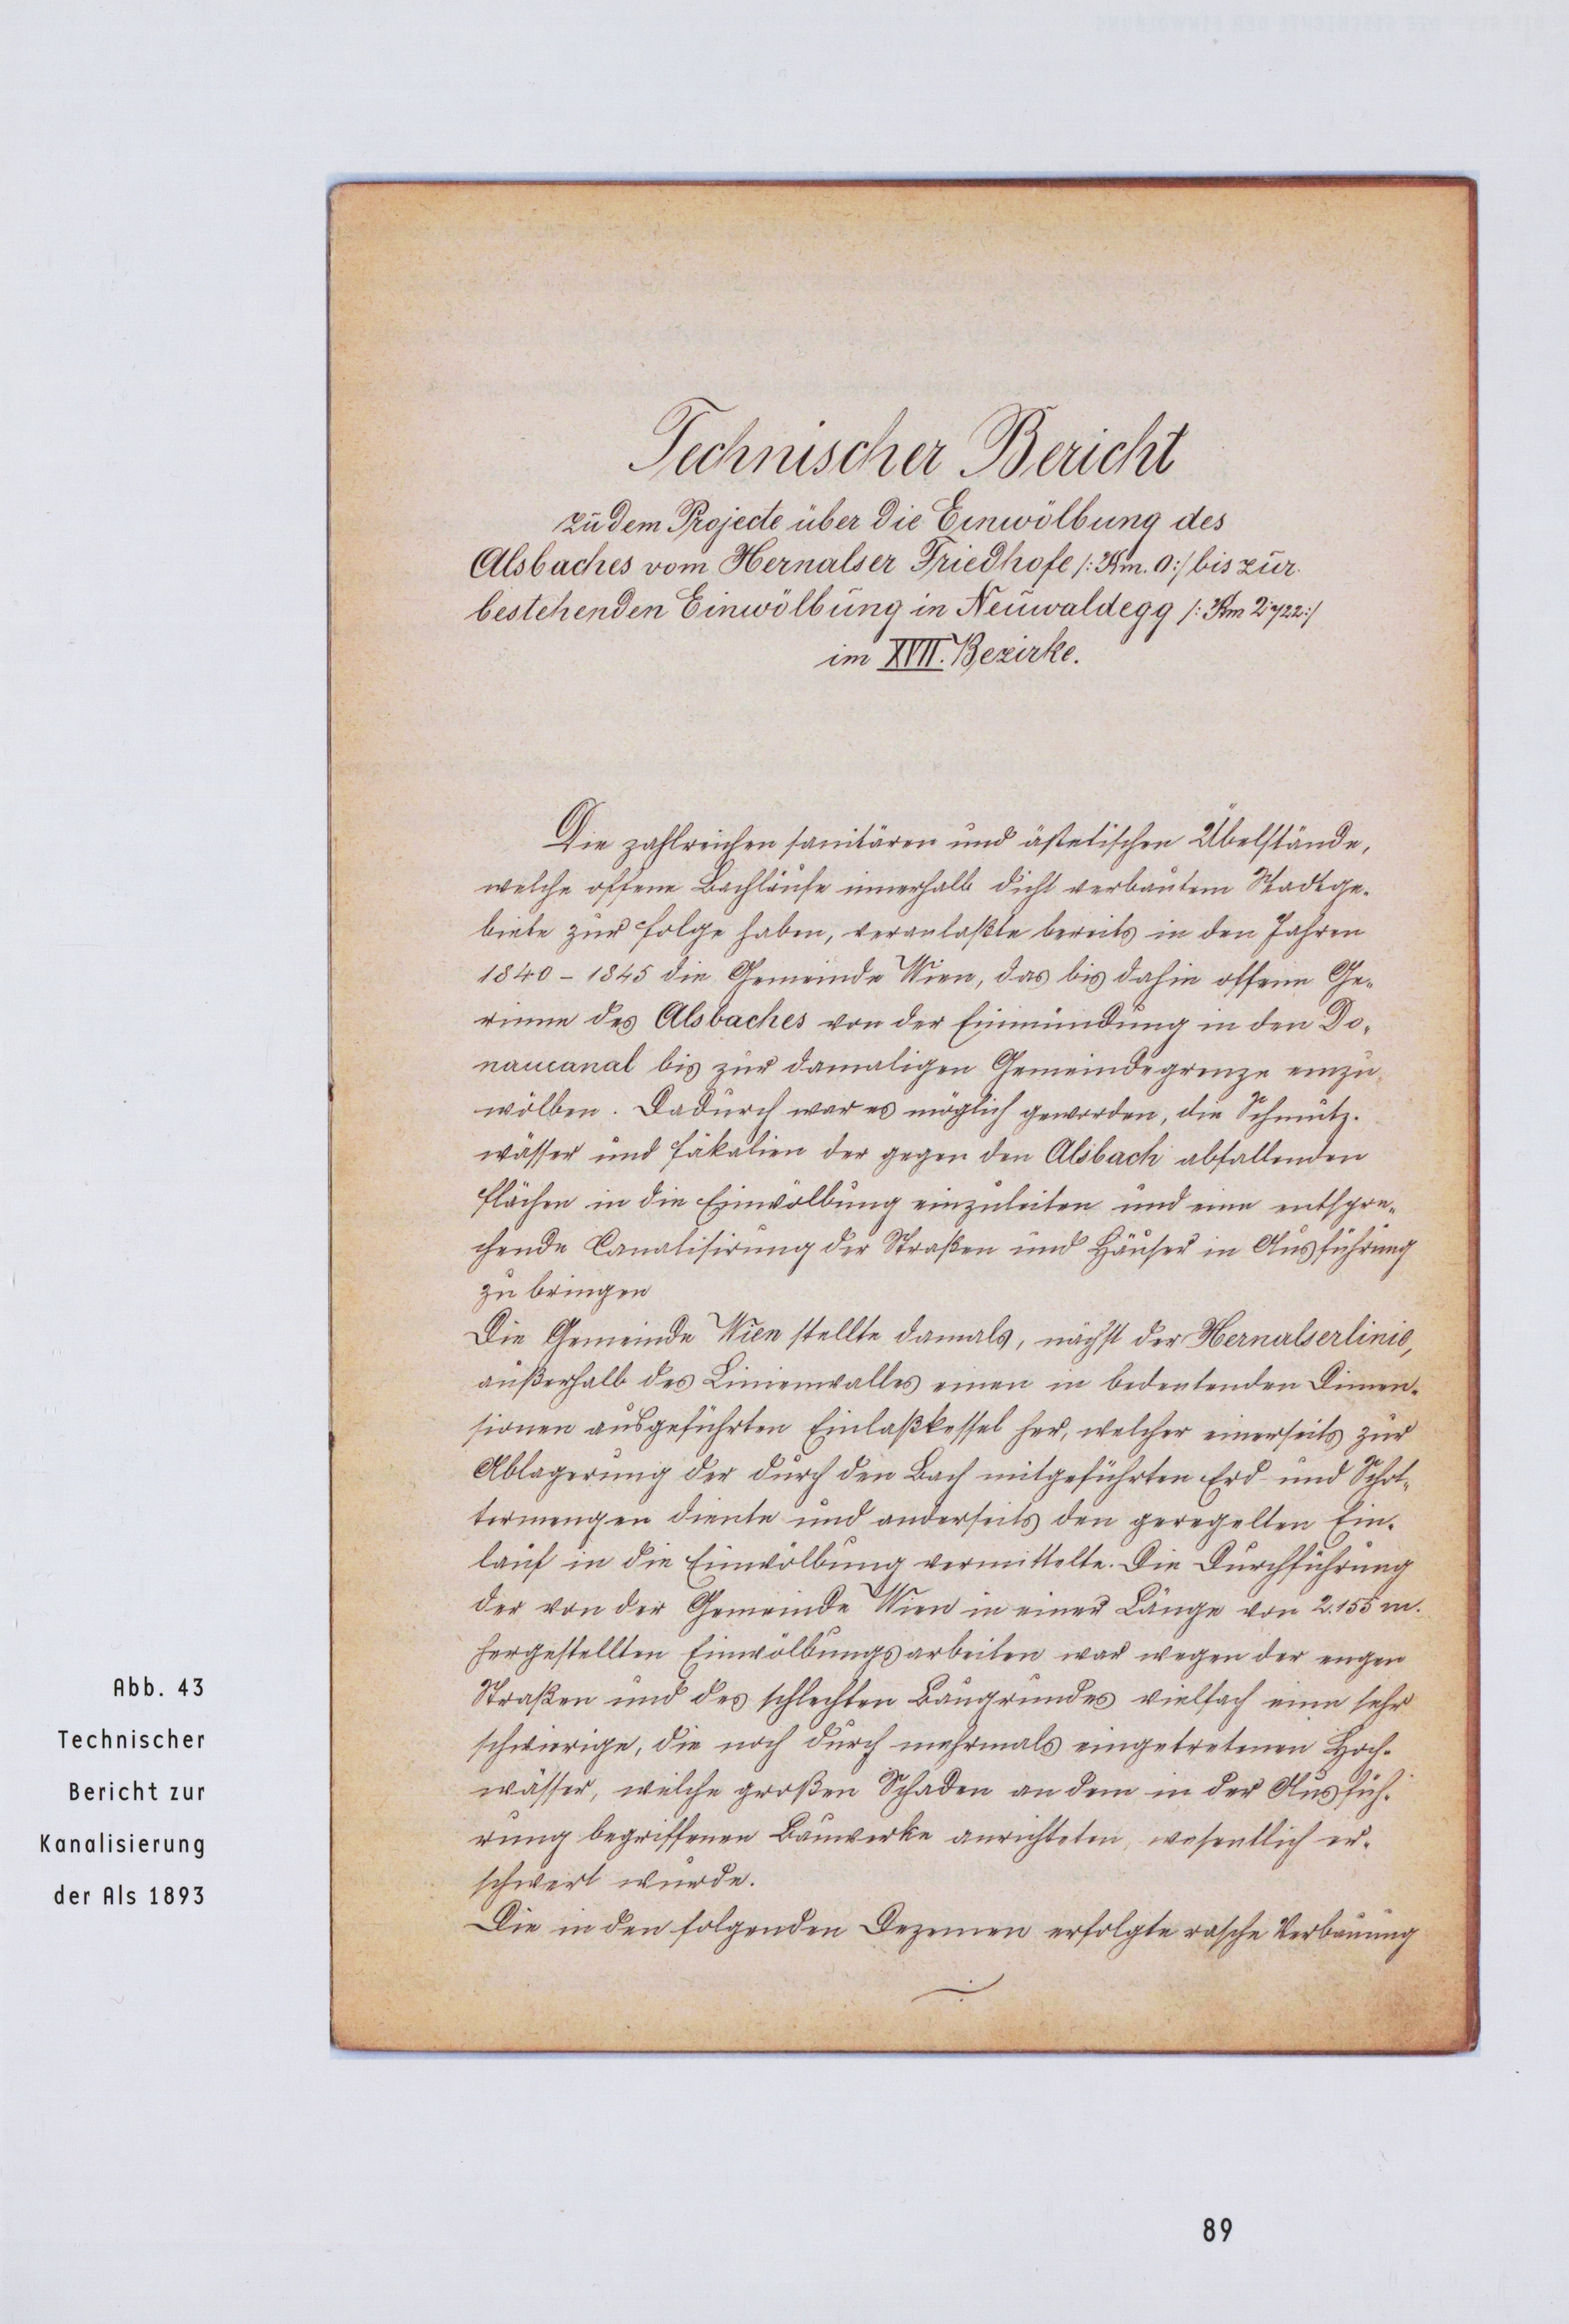 Technischer Bericht
zu dem Projecte über die Einwölbung des
Alsbaches vom Hernalser Friedhofe /: Km. 0:/ bis zur
bestehenden Einwölbung in Neuwaldegg /: Km 2·722:/
im XVII. Bezirke.
Die zahlreichen sanitären und ästetischen Übelstände,
welche offene Bachläufe innerhalb dicht verbautem Stadtge-
biete zur Folge haben, veranlaßte bereits in den Jahren
1840 – 1845 die Gemeinde Wien, das bis dahin offene Ge-
rinne des Alsbaches von der Einmündung in den Do-
naucanal bis zur damaligen Gemeindegrenze einzu-
wölben. Dadurch war es möglich geworden, die Schmutz-
wässer und Fäkalien der gegen den Alsbach abfallenden
Flächen in die Einwölbung einzuleiten und eine entspre-
chende Canalisirung der Straßen und Häuser in Ausführung
zu bringen
Die Gemeinde Wien stellte damals, nächst der Hernalserlinie,
außerhalb des Linienwalles einen in bedeutenden Dimen-
sionen ausgeführten Einlaßkessel her, welcher einerseits zur
Ablagerung der durch den Bach mitgeführten Erd- und Schot-
termengen diente und anderseits den geregelten Ein-
lauf in die Einwölbung vermittelte. Die Durchführung
der von der Gemeinde Wien in einer Länge von 2.155 m.
hergestellten Einwölbungsarbeiten war wegen der engen
Straßen und des schlechten Baugrundes vielfach eine sehr
schwierige, die noch durch mehrmals eingetretenen Hoch-
wässer, welche großen Schaden an dem in der Ausfüh-
rung begriffenen Bauwerke anrichteten, wesentlich er-
schwert wurde.
Die in den folgenden Dezenien erfolgte rasche Verbauung
Abb. 43
Technischer
Bericht zur
Kanalisierung
der Als 1893
89